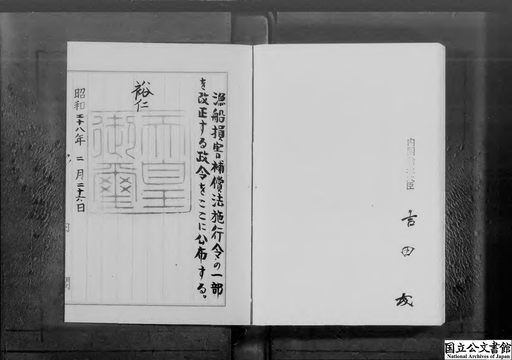 漁船損害補償法施行令の一部
を改正する政令をここに公布する。
裕仁
天皇
御璽
昭和二十八年二月二十六日
内閣総理大臣
吉田茂
国立公文書館
National Archives of Japan